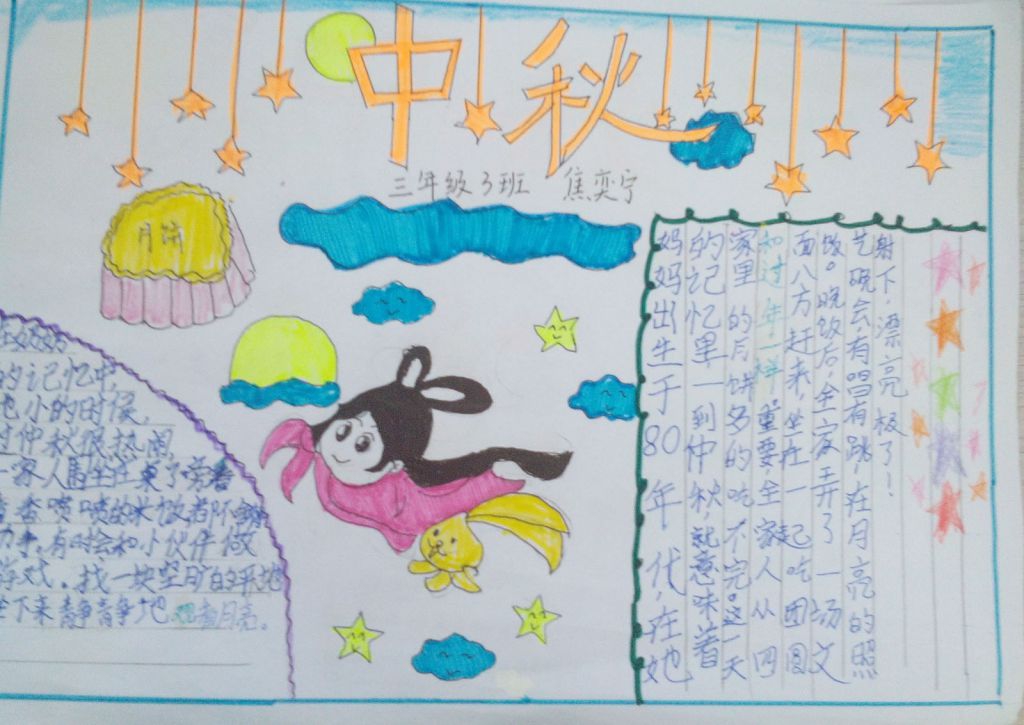 中秋
三年级3班 焦奕宁
月饼
奶奶
的记忆中,
小的时候,
过仲秋很热闹,
一家人围坐在桌子旁
香喷喷的米饭都不
手,有时会和小伙伴做
游戏,找一块空旷的平地
坐下来静静地 看月亮。
妈妈出生于80年代,在她
的记忆里一到仲秋,就意味着
家里的月饼多的吃不完。这一天
和过年一样重要。全家人从四
面八方赶来,坐在一起吃团圆
饭。晚饭后全家弄了一场文
艺晚会,有唱有跳在月亮的照
射下,漂亮极了!